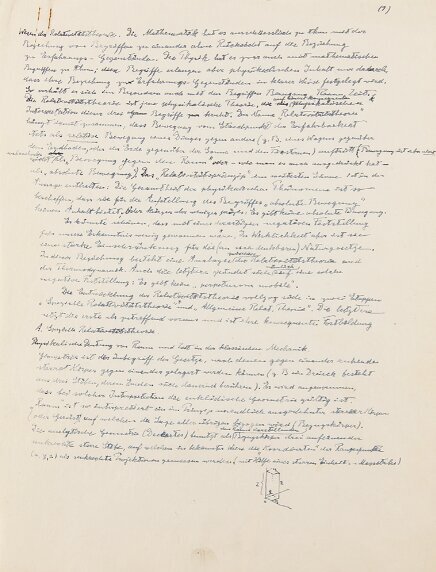 (1)
Wesen der Relativitätstheorie. Die Mathematik hat es ausschliesslich zu thun mit der
Beziehung von Begriffen zu einander ohne Rücksicht auf die Beziehung
zu Erfahrungs-Gegenständen. Die Physik hat es zwar auch mit mathematischen
Begriffen zu thun; diese Begriffe erlangen aber physikalischen Inhalt nur dadurch
dass ihre Beziehung zu Erfahrungs-Gegenständen in klarer Weise festgelegt wird.
So verhält es sich im Besonderen auch mit den Begriffen Bewegung, Raum, Zeit.
Die Relativitätstheorie ist jene physikalische Theorie, die
Interpretation dieser drei Begriffe Der Name Relativitätstheorie
hängt damit zusammen, dass Bewegung vom Standpunkt der Erfahrbarkeit
stets als relative Bewegung eines Dinges gegen andere (z. B. eines Wagens gegenüber
dem Erdboden oder der Erde gegenüber der Sonne und den Fixsternen) auftritt (Bewegung ist aber nicht
wahrnehmbar als „Bewegung gegen den Raum" oder – wie man es auch ausgedrückt hat –
als „absolute Bewegung"). Das „Relativitätsprinzip" im weitesten Sinne ist in der
Aussage enthalten: Die Gesamtheit der physikalischen Phänomene ist so
beschaffen, dass sie für die Einführung des Begriffes „absolute Bewegung"
keinen Anhalt bietet, oder kürzer aber weniger präzis: Es gibt keine absolute Bewegung.
Es könnte scheinen, dass mit einer derartigen negativen Feststellung
für unsere Erkenntnis wenig gewonnen wäre. In Wirklichkeit aber ist sie
eine starke Einschränkung für die (an sich denkbaren) Naturgesetze.
In dieser Beziehung besteht eine Analogie zwischen Relativitätstheorie und
der Thermodynamik. Auch die letztere gründet sich auf eine solche
negative Feststellung: Es gibt kein „perpetuum mobile".
Die Entwicklung der Relativitätstheorie vollzog sich in zwei Etappen
„Spezielle Relativitätstheorie" und „Allgemeine Relat. Theorie". Die letztere
setzt die erste als zutreffend voraus und ist ihre konsequente Fortbildung
A. Spezielle Relativitätstheorie.
Physikalische Deutung von Raum und Zeit in der klassischen Mechanik
Geometrie ist der Inbegriff der Gesetze, nach denen gegen einander ruhende
starre Körper gegen einander gelagert werden können (z. B. ein Dreieck besteht
aus drei Stäben, deren Enden sich dauernd berühren). Es wird angenommen,
dass bei solcher Interpretation die euklidische Geometrie gültig ist.
Raum ist so interpretiert ein im Prinzip unendlich ausgedehnter starrer Körper
(oder Gerüst), auf welchen die Lage aller übrigen bezogen wird (Bezugskörper).
Die analytische Geometrie (Descartes) benutzt als Bezugskörper drei aufeinander
senkrechte starre Stäbe, auf welchen die Koordinaten der Raumpunkte
(x, y, z) als senkrechte Projektionen gemessen werden (mit Hilfe eines starren Einheits-Massstabes)